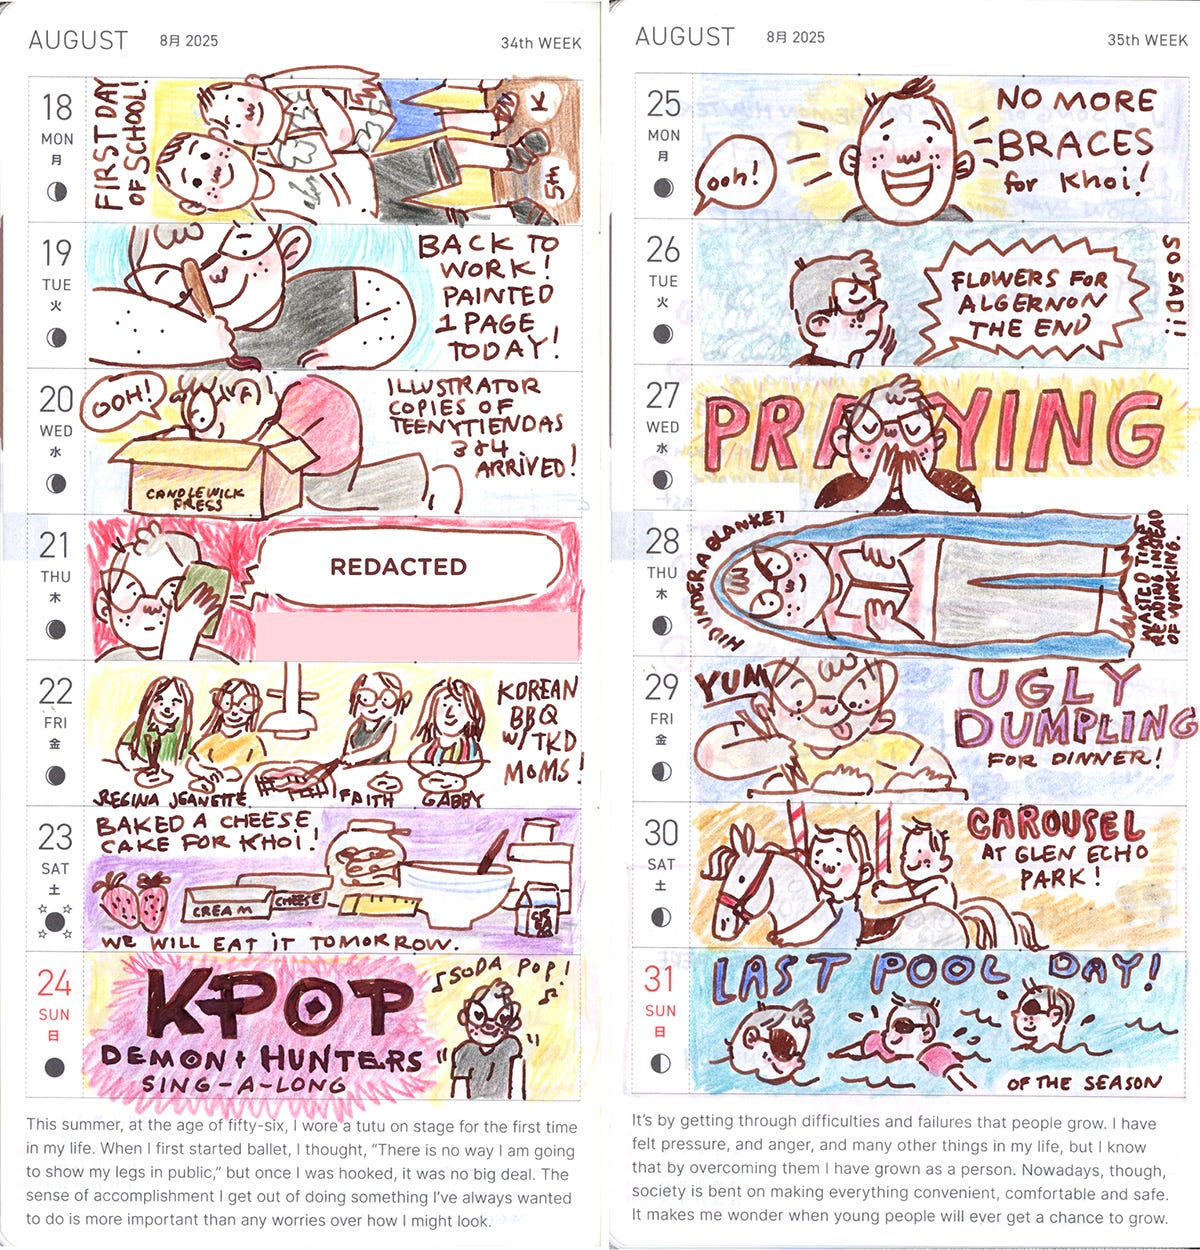 AUGUST 8月 2025 34th WEEK
18
MON
月
FIRST DAY
OF SCHOOL!
K
5th
19
TUE
火
BACK TO
WORK!
PAINTED
1 PAGE
TODAY!
20
WED
水
OOH!
CANDLEWICK
PRESS
ILLUSTRATOR
COPIES OF
TEENYTIENDAS
3 & 4
ARRIVED!
21
THU
木
REDACTED
22
FRI
金
KOREAN
BBQ
W/ TKD
MOMS!
REGINA JEANETTE FAITH GABBY
23
SAT
土
BAKED A CHEESE
CAKE FOR KHOI!
CREAM CHEESE
WE WILL EAT IT TOMORROW.
24
SUN
日
KPOP
DEMON HUNTERS
SING-A-LONG
SODA POP!
This summer, at the age of fifty-six, I wore a tutu on stage for the first time
in my life. When I first started ballet, I thought, “There is no way I am going
to show my legs in public,” but once I was hooked, it was no big deal. The
sense of accomplishment I get out of doing something I’ve always wanted
to do is more important than any worries over how I might look.
AUGUST 8月 2025 35th WEEK
25
MON
月
ooh!
NO MORE
BRACES
for Khoi!
26
TUE
火
FLOWERS FOR
ALGERNON
THE END
SO SAD!!
27
WED
水
PRAYING
28
THU
木
HID UNDER A BLANKET
WASTED TIME
READING INSTEAD
OF WORKING.
29
FRI
金
YUM
UGLY
DUMPLING
FOR DINNER!
30
SAT
土
CAROUSEL
AT GLEN ECHO
PARK!
31
SUN
日
LAST POOL DAY!
OF THE SEASON
It’s by getting through difficulties and failures that people grow. I have
felt pressure, and anger, and many other things in my life, but I know
that by overcoming them I have grown as a person. Nowadays, though,
society is bent on making everything convenient, comfortable and safe.
It makes me wonder when young people will ever get a chance to grow.